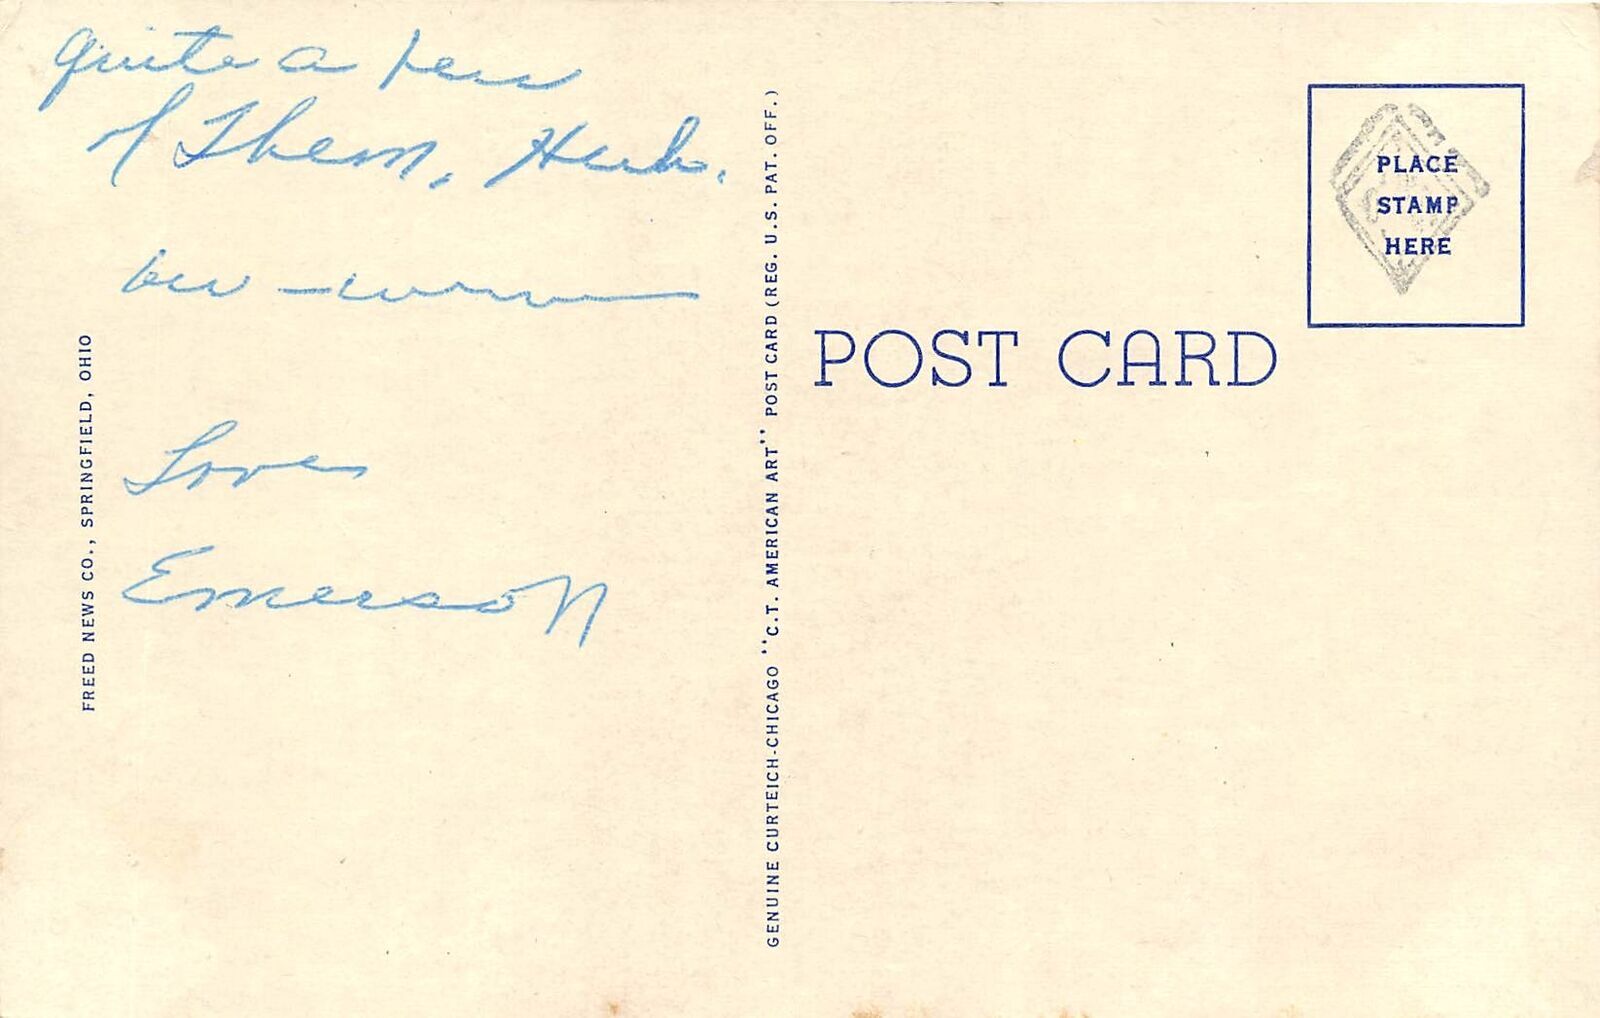 quite a few
of Them, Herb.
Love
Emerson
FREED NEWS CO., SPRINGFIELD, OHIO
GENUINE CURTEICH-CHICAGO "C.T. AMERICAN ART" POST CARD (REG. U.S. PAT. OFF.)
POST CARD
PLACE
STAMP
HERE